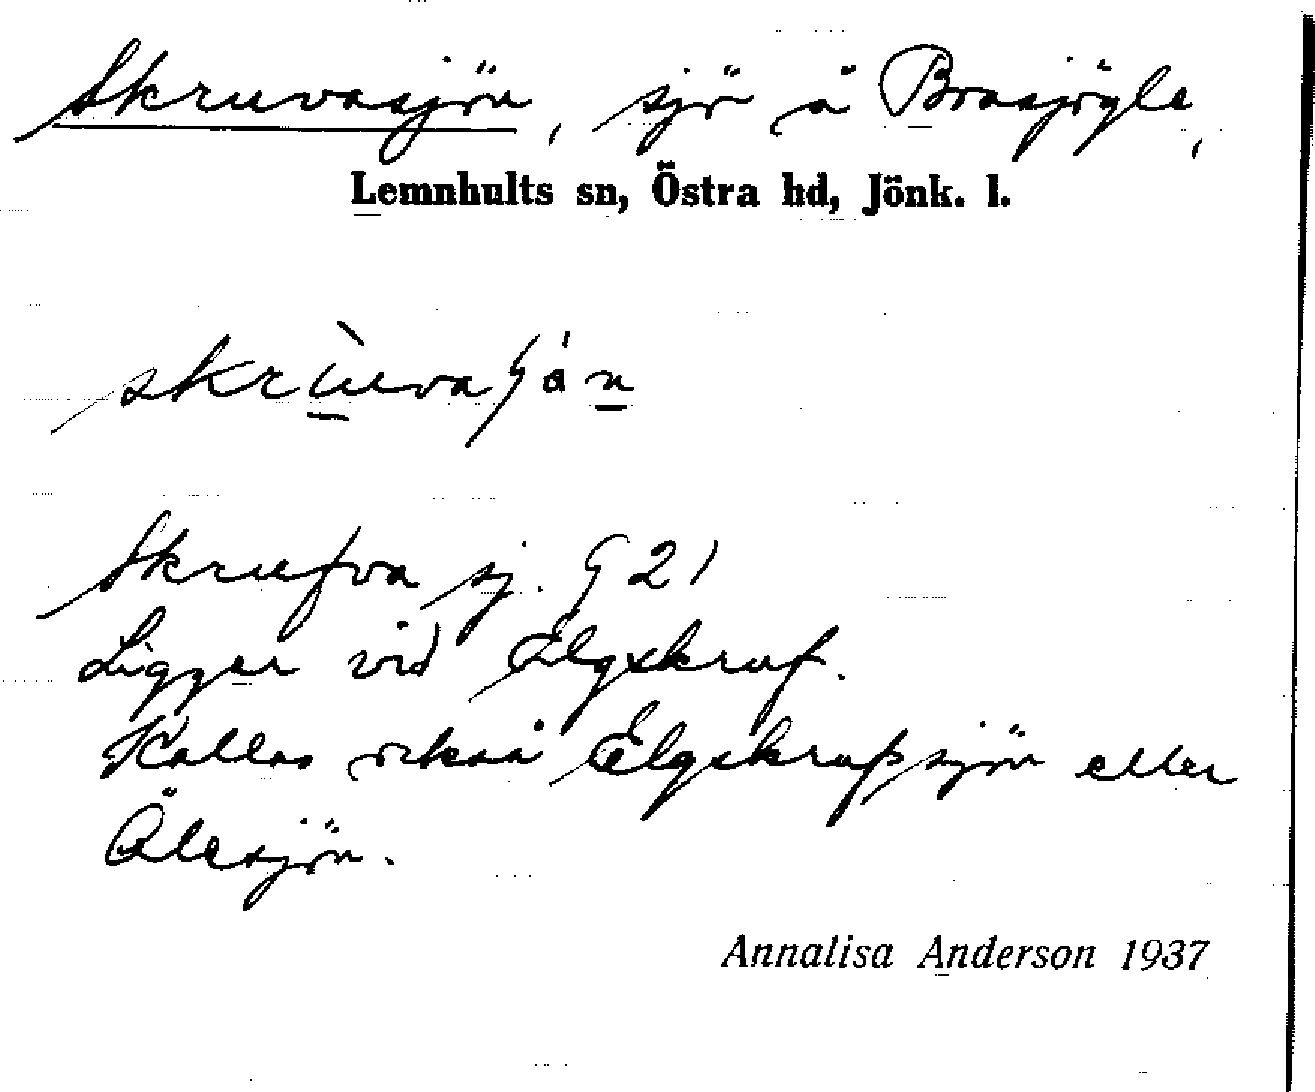 Skruvasjön, sjö å Brasjögle,
Lemnhults sn, Östra hd, Jönk. l.
Skrufva sj. G 21
Ligger vid Elgskruf.
Kallas också Elgskrufssjön eller
Ålesjön.
Annalisa Anderson 1937